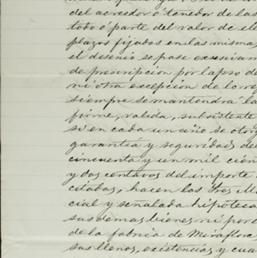 del acreedor ó tenedor de las
todo ó parte del valor de el
plazos fijados en las misma
el desenio se pase
de prescripcion por lapso de
ni otra excepcion de
siempre se mantendra la
firme, valida, subsistente
si en cada un año se
garantia y seguridad de
cincuenta y un mil cien
y dos centavos del importe
citadas, hacen las tres
cial y señalada hipoteca
sus demas bienes ni por
de la fabrica de Miraflor
sus llenos, existencias y cua